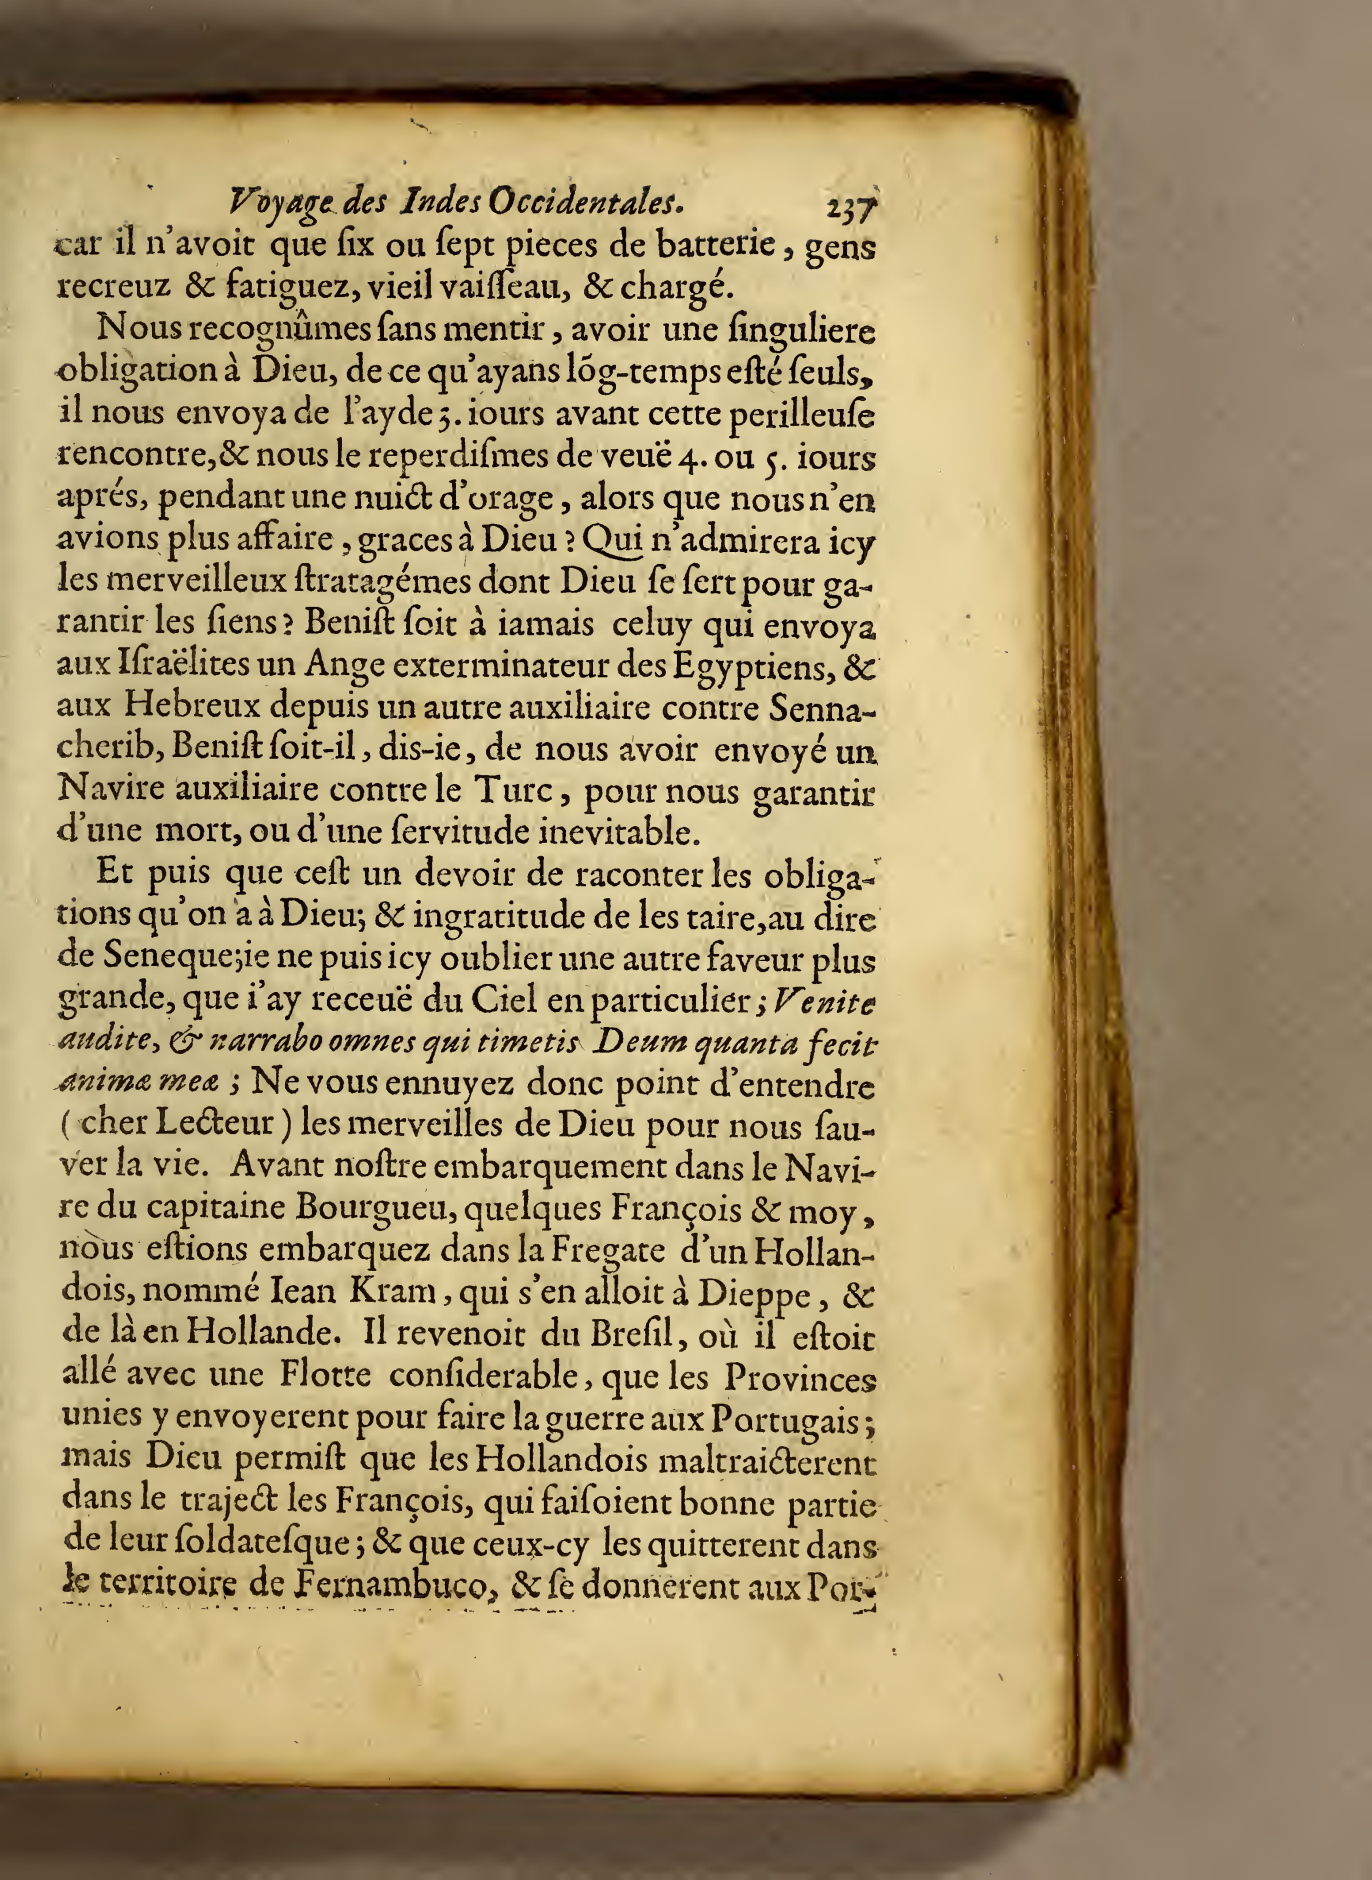 Voyage des Indes Occidentales. 237
car il n'avoit que ſix ou ſept pieces de batterie, gens
recreuz & fatiguez, vieil vaiſſeau, & chargé.
Nous recognûmes ſans mentir, avoir une ſinguliere
obligation à Dieu, de ce qu'ayans lõg-temps eſté ſeuls,
il nous envoya de l'ayde 3. iours avant cette perilleuſe
rencontre, & nous le reperdiſmes de veuë 4. ou 5. iours
aprés, pendant une nuict d'orage, alors que nous n'en
avions plus affaire, graces à Dieu ? Qui n'admirera icy
les merveilleux ſtratagémes dont Dieu ſe ſert pour ga-
rantir les ſiens ? Beniſt ſoit à iamais celuy qui envoya
aux Iſraëlites un Ange exterminateur des Egyptiens, &
aux Hebreux depuis un autre auxiliaire contre Senna-
cherib, Beniſt ſoit-il, dis-ie, de nous avoir envoyé un
Navire auxiliaire contre le Turc, pour nous garantir
d'une mort, ou d'une ſervitude inevitable.
Et puis que ceſt un devoir de raconter les obliga-
tions qu'on a à Dieu; & ingratitude de les taire, au dire
de Seneque; ie ne puis icy oublier une autre faveur plus
grande, que i'ay receuë du Ciel en particulier; Venite
audite, & narrabo omnes qui timetis Deum quanta fecit
animæ meæ ; Ne vous ennuyez donc point d'entendre
( cher Lecteur ) les merveilles de Dieu pour nous ſau-
ver la vie. Avant noſtre embarquement dans le Navi-
re du capitaine Bourgueu, quelques François & moy,
nous eſtions embarquez dans la Fregate d'un Hollan-
dois, nommé Iean Kram, qui s'en alloit à Dieppe, &
de là en Hollande. Il revenoit du Breſil, où il eſtoit
allé avec une Flotte conſiderable, que les Provinces
unies y envoyerent pour faire la guerre aux Portugais ;
mais Dieu permiſt que les Hollandois maltraicterent
dans le traject les François, qui faiſoient bonne partie
de leur ſoldateſque ; & que ceux-cy les quitterent dans
le territoire de Fernambuco, & ſe donnerent aux Por-